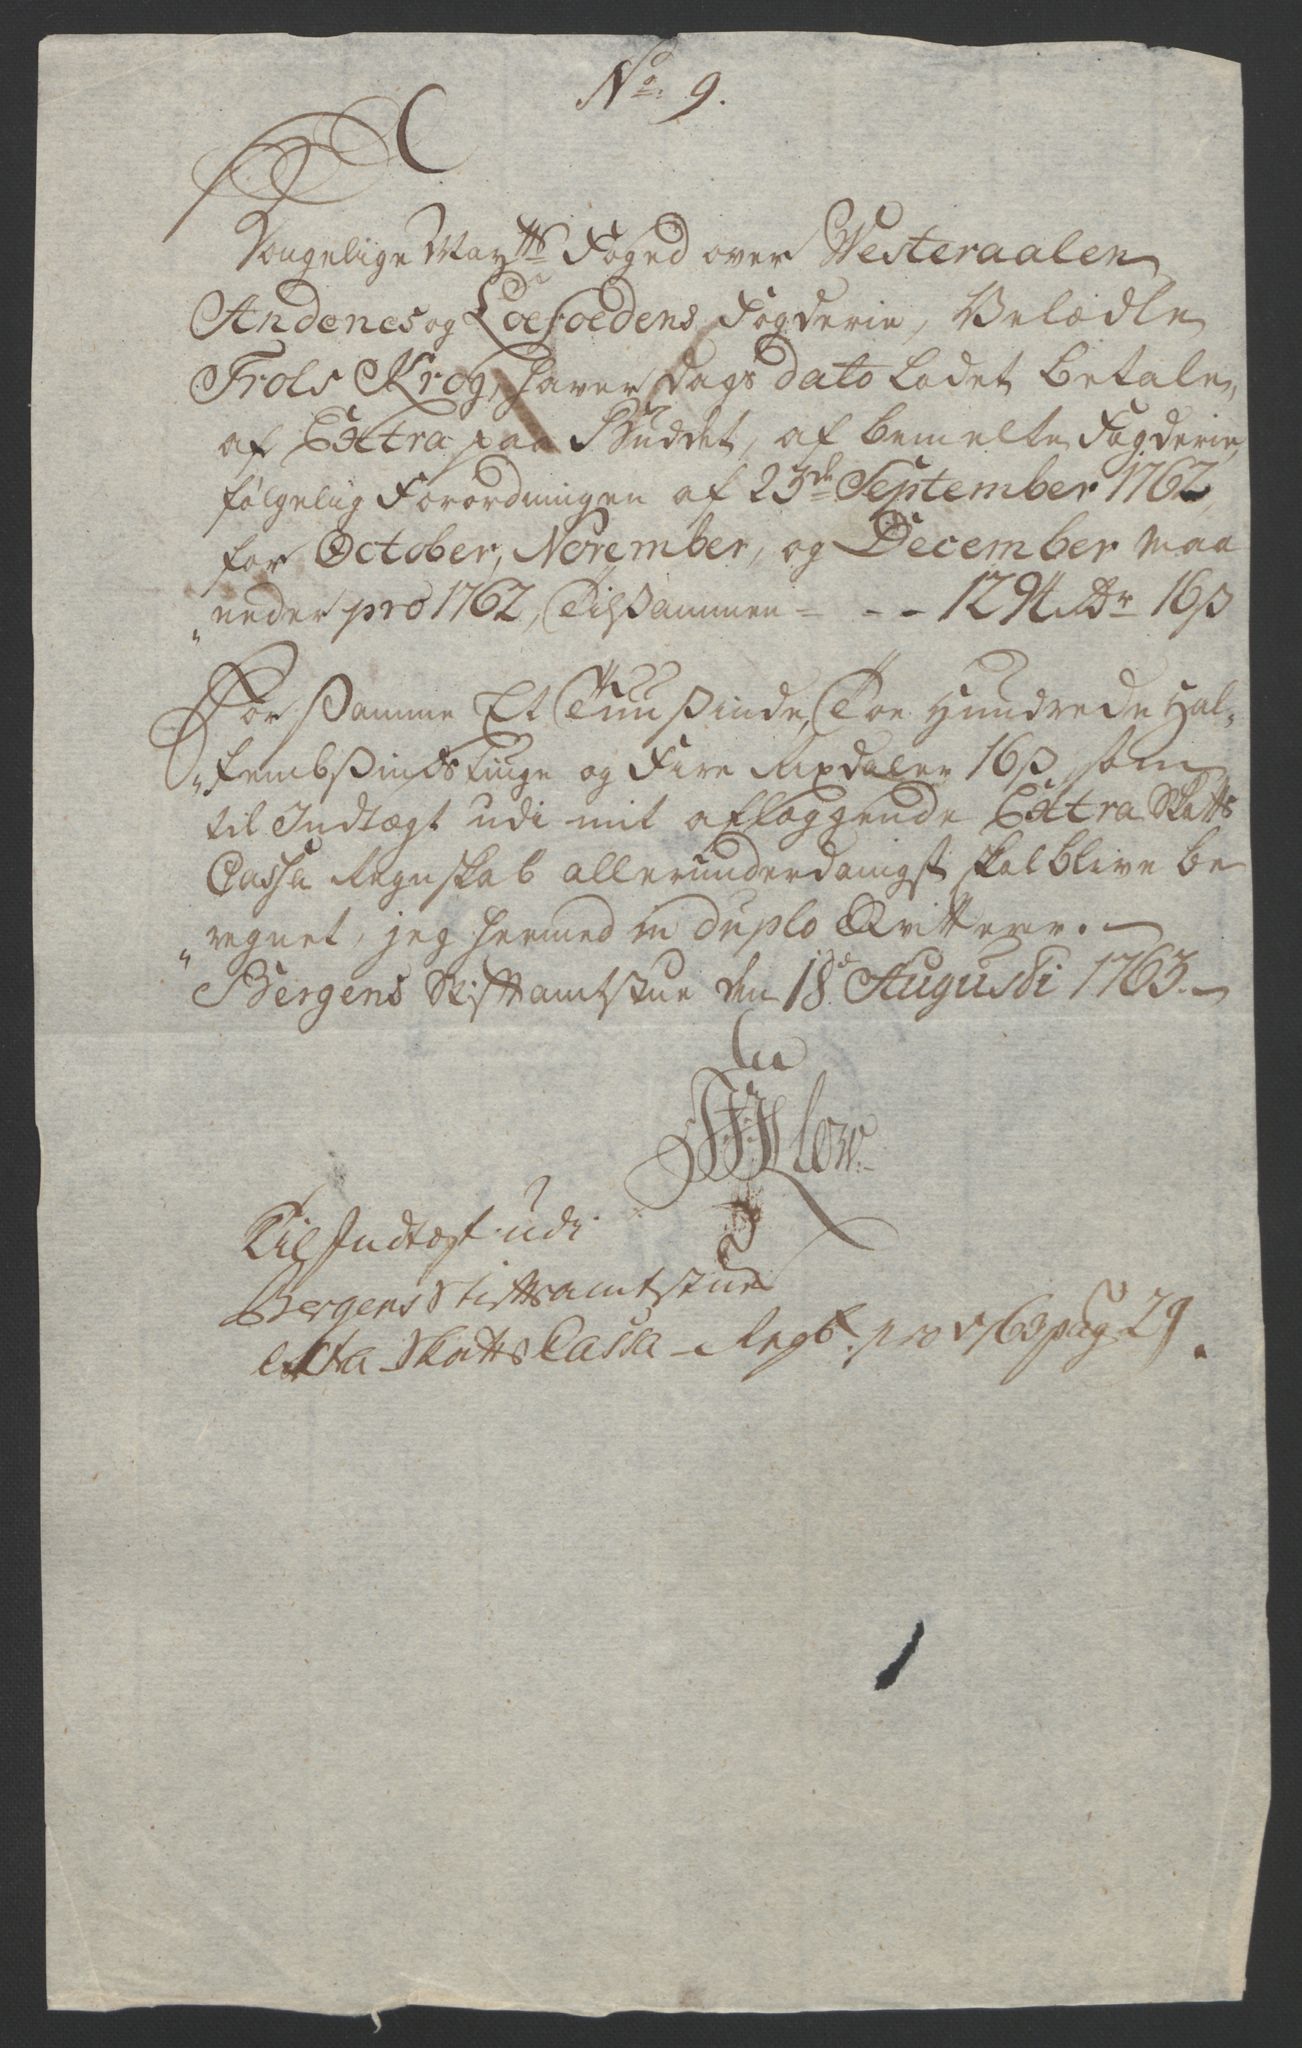 No. 9.
Kongelige Mayts Foged over Westeraalen
Andenes og Loefoedens Fogderie, Velædle
Trols Krog, haver Dags dato ladet betale,
af Extra paa Buddet, af bemelte Fogderie,
følgelig Forordningen af 23de September 1762,
for October, November, og December Maa
"neder pro 1762, Tilsammen - - - 1294 Rdr 16ß
For Samme Et Tuusinde, Toe Hundrede Hal-
"fembsindstiuge og Fire Rixdaler 16ß som
til Indtægt udi mit aflæggende Extra Skatts
Cassa Regnskab allerunderdanigst skal blive be
"regnet, jeg hermed in duplo Qvitterer. -
Bergens Stiftamtstue den 18d Augusti 1763. -
Til Indtægt udi
Bergens Stiftsamtstue
Extra Skatts Cassa - Regsk. pro 1763 pag 29.